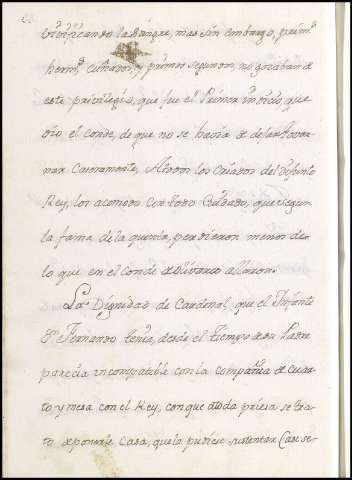 vivificando la Sangre, mas sin embargo, prim.ᵒˢ
herm.ᵒˢ cuñados, y primos segundos, no gozaban de
este privilegio, que fue el Primer indicio que
dio el Conde, de que no se havia de dejar Gover
nar Caseramente, A todos los Criados del difunto
Rey, los acomodo con todo Cuidado, que segun
la fama de la quenta, perdieron menos de
lo que en el Conde de Olivares allaron.
La Dignidad de Cardenal, que el Infante
Dⁿ Fernando tenia, desde el tiempo de su Padre
parecia incompatible con la compañia de quar
to y mesa con el Rey, con que a toda priesa se tra
to de ponerle Casa, que la pudiese sustentar Case se-